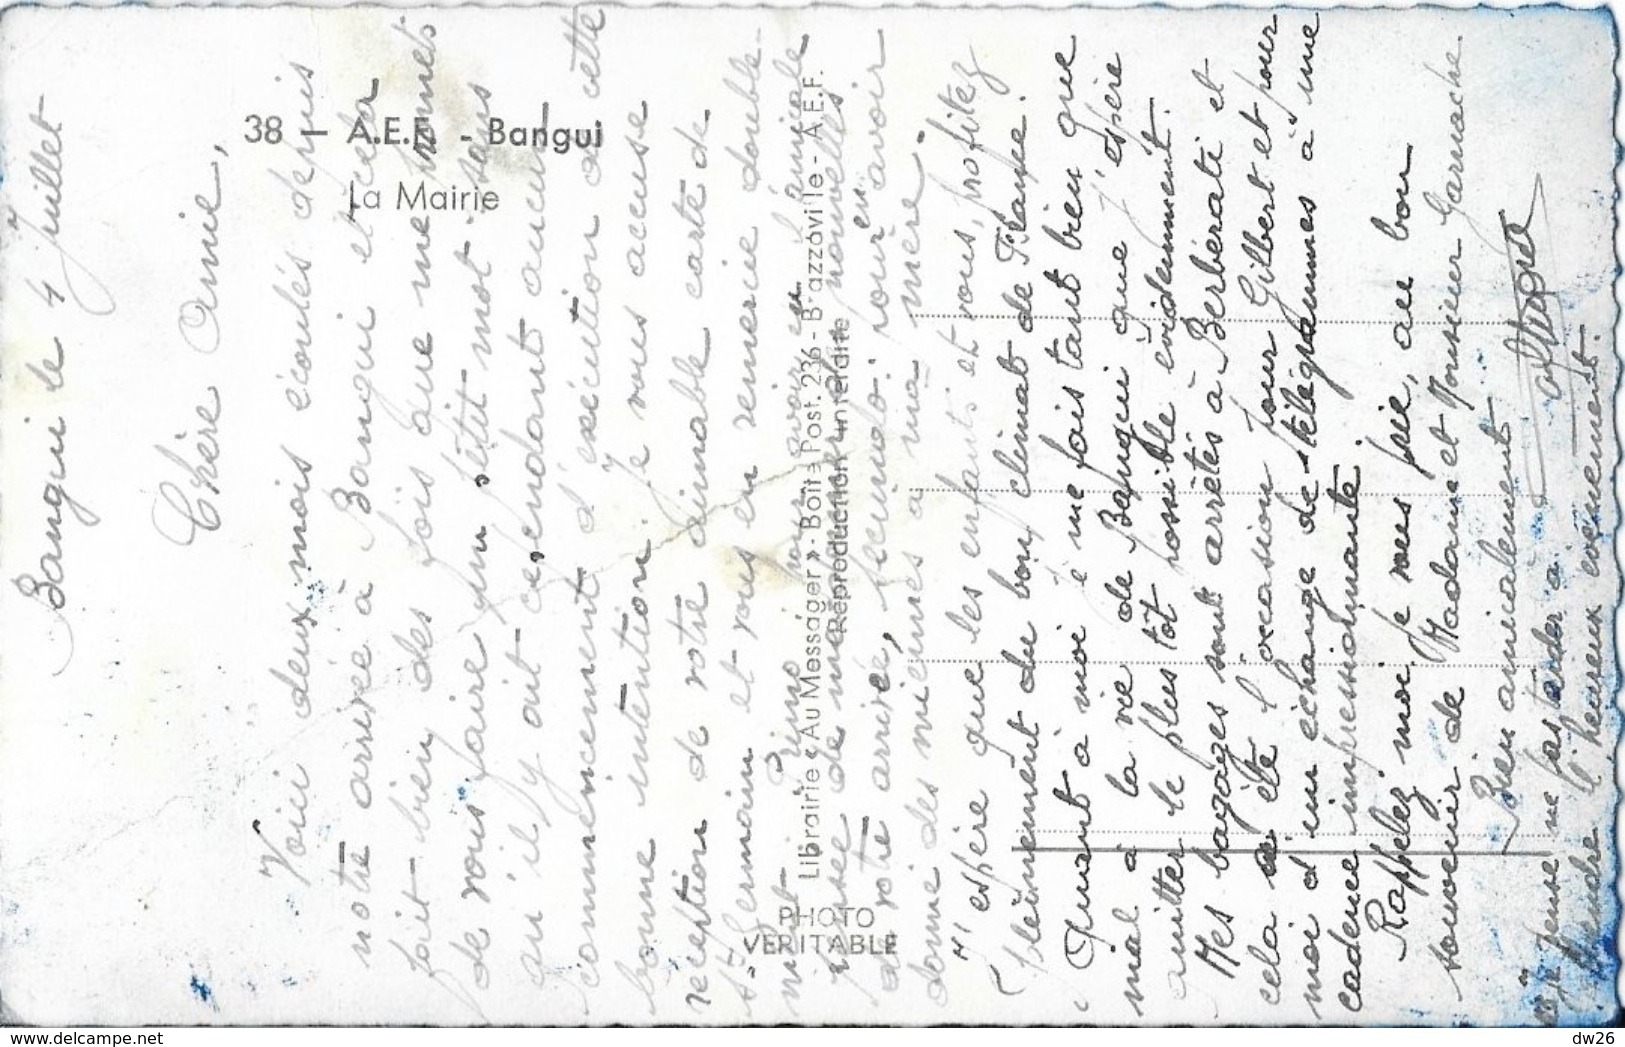 38 - A.E.F. - Bangui
La Mairie
Librairie « Au Messager » - Boîte Post. 236 - Brazzaville - A.E.F.
Reproduction interdite
PHOTO
VERITABLE
Bangui le 4 Juillet
Chère Amie,
Voici deux mois écoulés depuis
notre arrivée à Bangui et cela
fait bien des fois que me promets
de vous faire un petit mot sans
qu'il y ait cependant aucun
commencement d'exécution à cette
bonne intention. Je vous accuse
réception de votre aimable carte de
St Germain et vous en remercie double-
ment. Primo pour avoir eu l'amicale
pensée de me donner des nouvelles
de votre arrivée, secundo: pour en avoir
donné des miennes à ma mère.
J'espère que les enfants et vous, profitez
pleinement du bon climat de France.
Quant à moi je me fais tant bien que
mal à la vie de Bangui que j'espère
quitter le plus tôt possible évidemment.
Mes bagages sont arrêtés à Berbérati et
cela a été l'occasion pour Gilbert et pour
moi d'un échange de télégrammes à une
cadence impressionnante.
Rappelez moi je vous prie, au bon
souvenir de Madame et Monsieur Garnache.
Bien amicalement
je pense ne pas tarder à
apprendre l'heureux évènement.
dw26